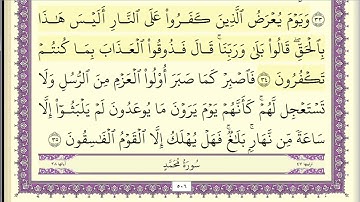 ٣٣ وَيَوْمَ يُعْرَضُ الَّذِينَ كَفَرُوا عَلَى النَّارِ أَلَيْسَ هَٰذَا
بِالْحَقِّ ۖ قَالُوا بَلَىٰ وَرَبِّنَا ۚ قَالَ فَذُوقُوا الْعَذَابَ بِمَا كُنتُمْ
تَكْفُرُونَ ٣٤ فَاصْبِرْ كَمَا صَبَرَ أُولُوا الْعَزْمِ مِنَ الرُّسُلِ وَلَا
تَسْتَعْجِل لَّهُمْ ۚ كَأَنَّهُمْ يَوْمَ يَرَوْنَ مَا يُوعَدُونَ لَمْ يَلْبَثُوا إِلَّا
سَاعَةً مِّن نَّهَارٍ ۚ بَلَاغٌ ۚ فَهَلْ يُهْلَكُ إِلَّا الْقَوْمُ الْفَاسِقُونَ ٣٥
سُورَةُ مُحَمَّدٍ
٥٠٦